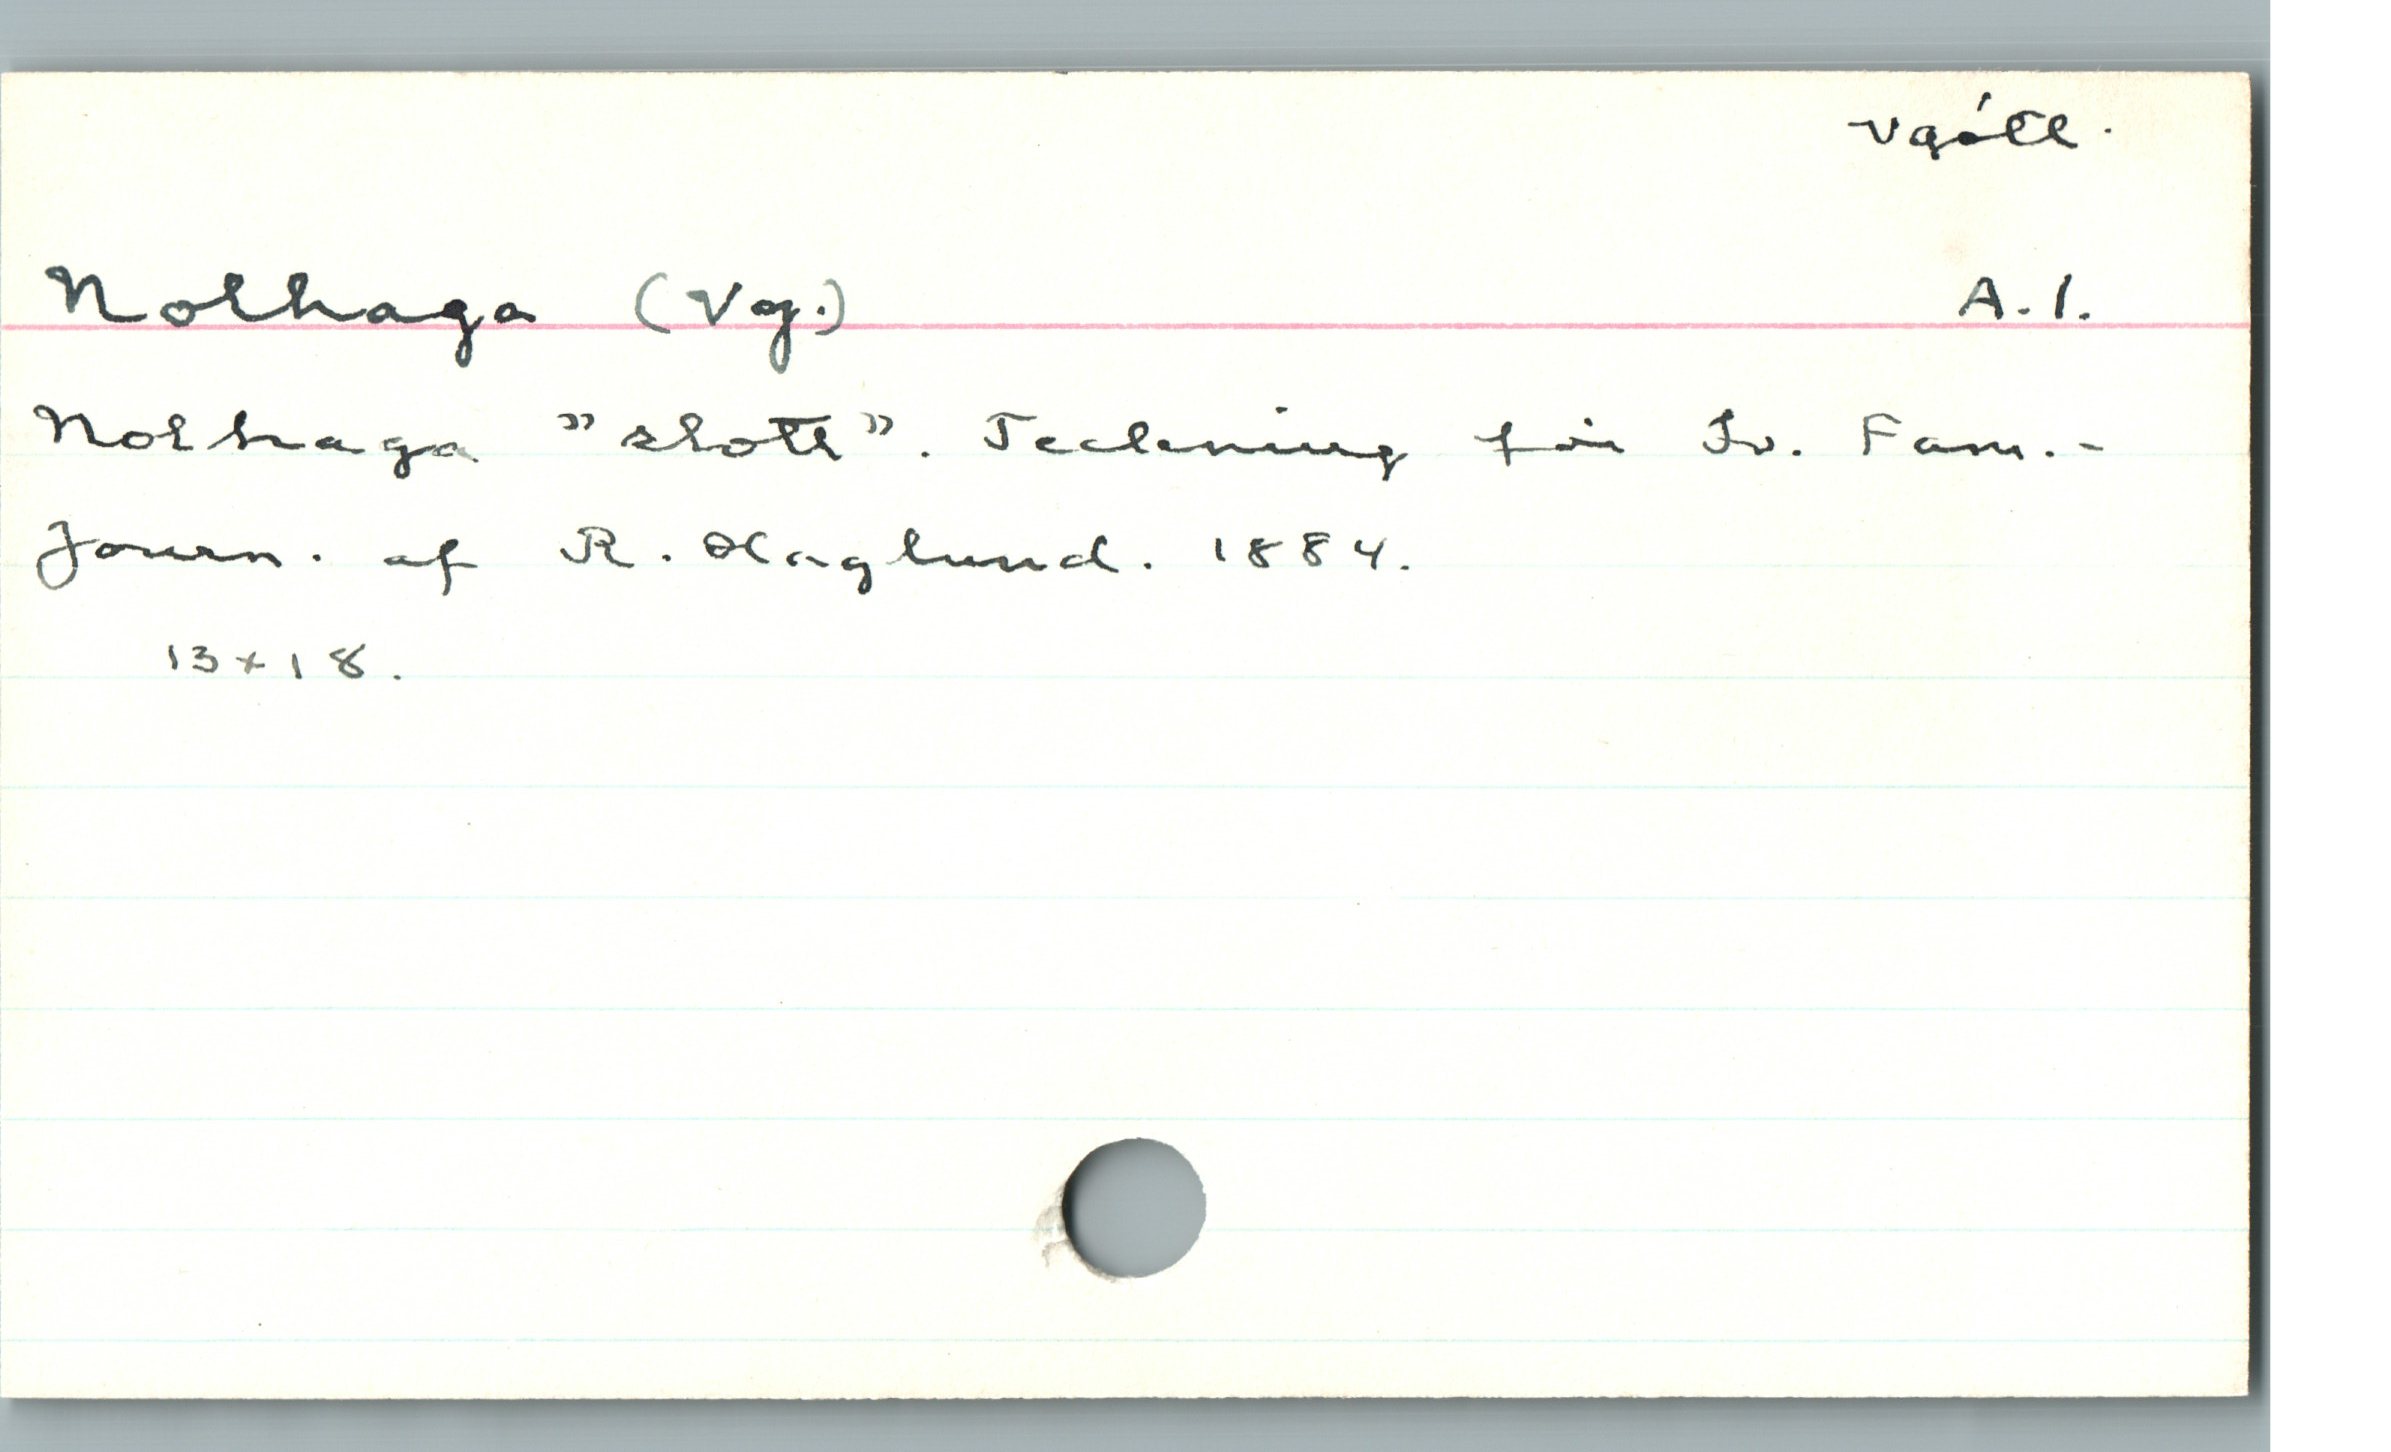 Vgötl.
Nolhaga (Vg.) A.1.
Nolhaga ”slott”. Teckning för Sv. Fam.-
Journ. af R. Haglund. 1884.
13×18.